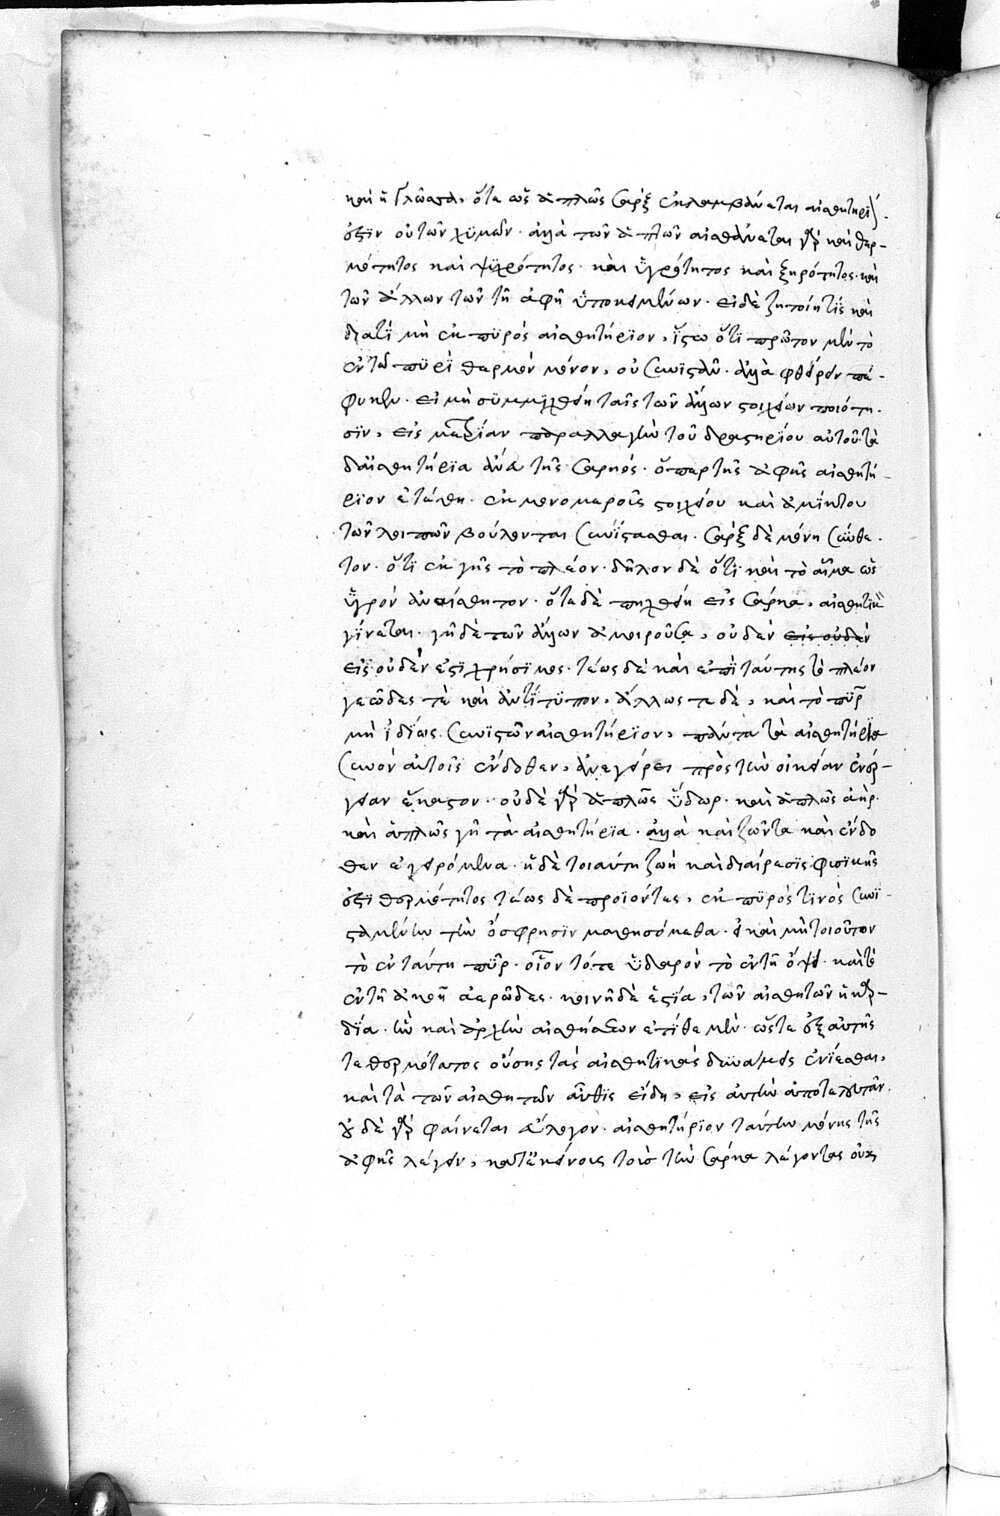 καὶ ἡ γλῶσσα, ὅτε ὡς ἁπλῶς σὰρξ ἐκλαμβάνεται αἰσθητήρι
οὐ τῶν χυμῶν· ἀλλὰ τῶν ἁπτῶν αἰσθάνεται γὰρ καὶ θερ-
μότητος καὶ ψυχρότητος· καὶ ὑγρότητος καὶ ξηρότητος· καὶ
τῶν ἄλλων τῶν τῇ ἁφῇ ὑποκειμένων· εἰ δὲ ζητοίη τίς καὶ
διατί μὴ ἐκ πυρός αἰσθητήριον, ἴστω ὅτι πρῶτον μὲν τὸ
ἐν τῷ πυρὶ θερμὸν μόνον, οὐ συνιστᾶν· ἀλλὰ φθείρειν πέ-
φυκεν· εἰ μὴ συμμιχθείη ταῖς τῶν ἄλλων στοιχείων ποιότη-
σιν, εἰς παραλλαγὴν τοῦ δραστηρίου αὐτοῦ τὰ
δ' αἰσθητήρια ἄνευ τῆς σαρκός· ὅπερ τῆς ἁφῆς αἰσθητή-
ριον ἐτάχθη· ἐκ μονομεροῦς στοιχείου καὶ ἀμίκτου
τῶν λοιπῶν βούλονται συνίστασθαι· σὰρξ δὲ μόνη σύνθε-
τον· ὅτι ἐκ γῆς τὸ πλέον· δῆλον δὲ ὅτι καὶ τὸ αἷμα ὡς
ὑγρόν ἀναίσθητον· ὅτε δὲ πηχθείη εἰς σάρκα, αἰσθητικὴ
γίνεται· γῆ δὲ τῶν ἄλλων ἀμοιροῦσα, οὐδὲν εἰς οὐδὲν
εἰς οὐδέν ἐστι χρήσιμος· τέως δὲ καὶ ἐπὶ ταύτης τὸ πλέον
γεῶδες τὲ καὶ ἀντίτυπον, ἄλλως τε δὲ, καὶ τὸ πῦρ
μὴ ἰδίως συνιστῶν αἰσθητήριον, πάντα τὰ αἰσθητήρια
συνὸν αὐτοῖς ἔνδοθεν, ἀνεγείρει πρὸς τὴν οἰκείαν ἐνέρ-
γειαν ἕκαστον· οὐδὲ γὰρ ἁπλῶς ὕδωρ· καὶ ἁπλῶς ἀὴρ·
καὶ ἁπλῶς γῆ τὰ αἰσθητήρια· ἀλλὰ καὶ ζῶντα καὶ ἔνδο
θεν ἐγειρόμενα· ἡ δὲ τοιαύτη ζωὴ καὶ διαίρεσις φυσικῆς
ἐστὶ θερμότητος τέως δὲ προϊόντες, ἐκ πυρός τινὸς συνι-
σταμένην τὴν ὄσφρησιν μαθησόμεθα· εἰ καὶ μὴ τοιοῦτον
τὸ ἐν ταύτῃ πῦρ· οἷον τότε ὑδαρὸν τὸ ἐν τῇ ὄψει· καὶ τὸ
ἐν τῇ ἀκοῇ ἀερῶδες· κοινὴ δὲ ἑστία, τῶν αἰσθητῶν ἡ καρ-
δία· ἣν καὶ ἀρχὴν αἰσθήσεων ἐτίθεμεν· ὥστε ἐξ αὐτῆς
τε θερμότατος οὔσης τάς αἰσθητικὰς δυνάμεις ἐνίεσθαι,
καὶ τὰ τῶν αἰσθητῶν αὖθις εἴδη, εἰς αὐτὴν ἀποτελευτᾶν.
οὐ δὲ γὰρ φαίνεται εὔλογον· αἰσθητήριον ταύτην μόνης τῆς
ἁφῆς λέγειν, κατ' ἐκείνους τοὺς τὴν σάρκα λέγοντας οὐκ